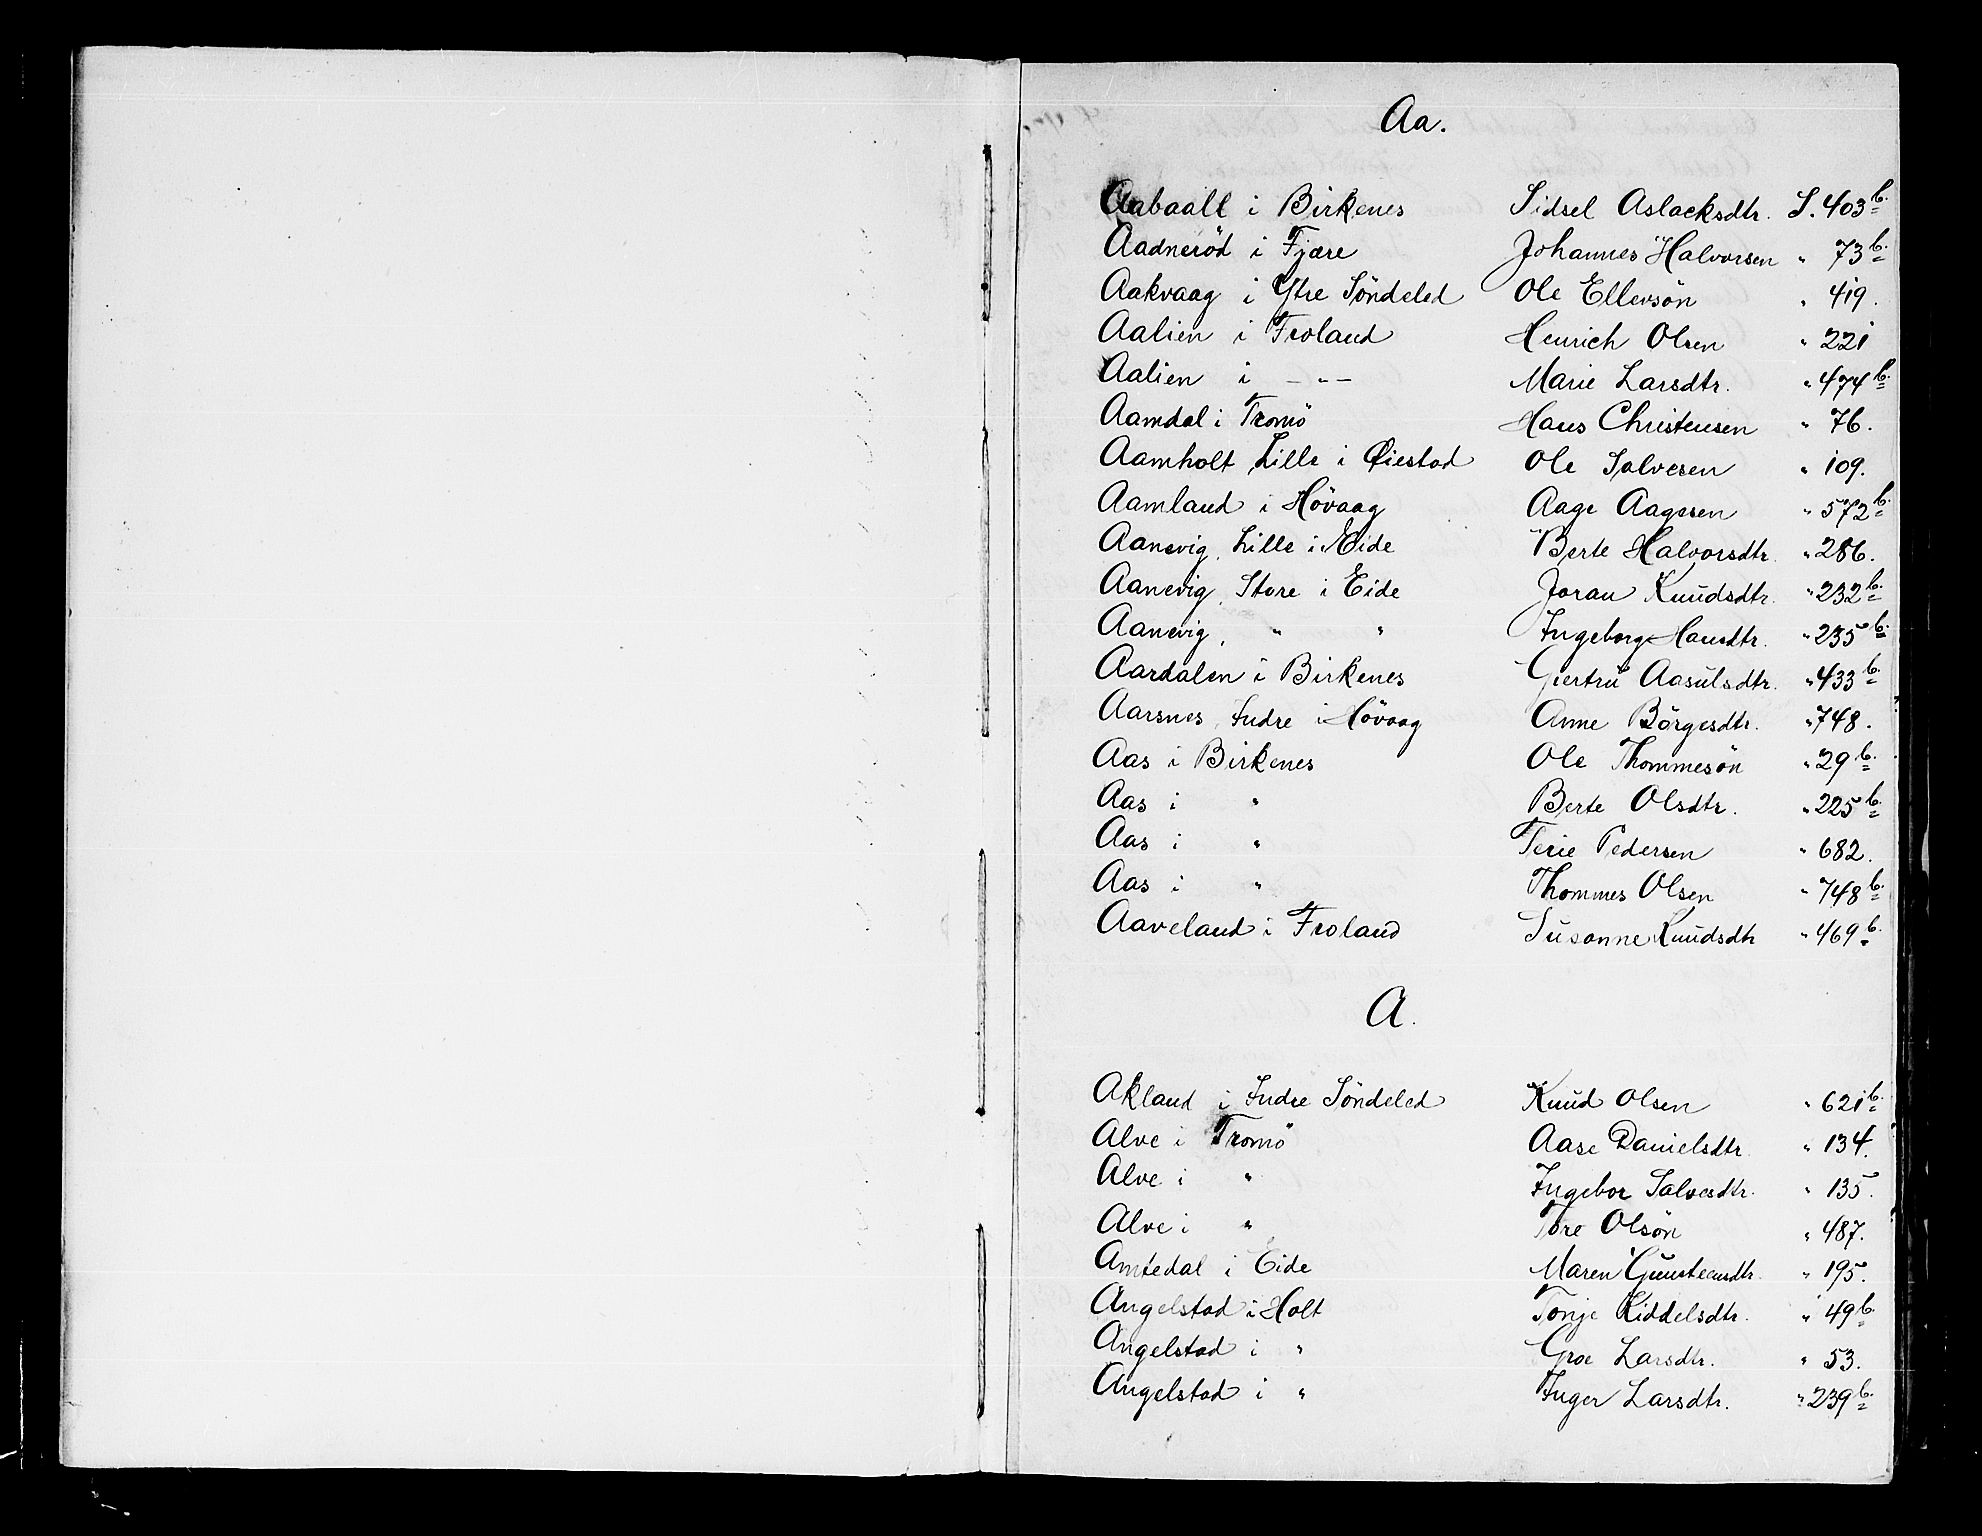 Aa.
Aabaall i Birkenes Sidsel Aslacksdtr. S. 403 b.
Aadneröd i Fjære Johannes Halvorsen " 73 b.
Aakvaag i Ytre Söndeled Ole Ellevsön " 419.
Aalien i Froland Henrich Olsen " 221
Aalien i — " — Marie Larsdtr. " 474 b.
Aamdal i Tromö Hans Christensen " 76.
Aamholt Lille i Øiestad Ole Salvesen " 109.
Aamland i Hövaag Aage Aagesen " 572 b.
Aanevig, Lille i Eide Berte Halvorsdtr. " 286.
Aanevig, Store i Eide Joran Knudsdtr. " 232 b.
Aanevig, " " Ingeborg Hansdtr. " 235 b.
Aardalen i Birkenes Giertru Aasulsdtr. " 433 b.
Aarsnes, Indre i Hövaag Anne Börgesdtr. " 748.
Aas i Birkenes Ole Thommesön " 29 b.
Aas i " Berte Olsdtr. " 225 b.
Aas i " Terie Pedersen " 682.
Aas i " Thommes Olsen " 748 b.
Aaveland i Froland Susanne Knudsdtr " 469 b.
A.
Akland i Indre Söndeled Knud Olsen " 621 b.
Alve i Tromö Aase Danielsdtr " 134.
Alve i " Ingebor Salvesdtr. " 135.
Alve i " Tore Olsön " 487.
Amtedal i Eide Maren Gunsteensdtr. " 195.
Angelstad i Holt Tonje Kiddelsdtr. " 49 b.
Angelstad i " Groe Larsdtr. " 53.
Angelstad i " Inger Larsdtr. " 239 b.